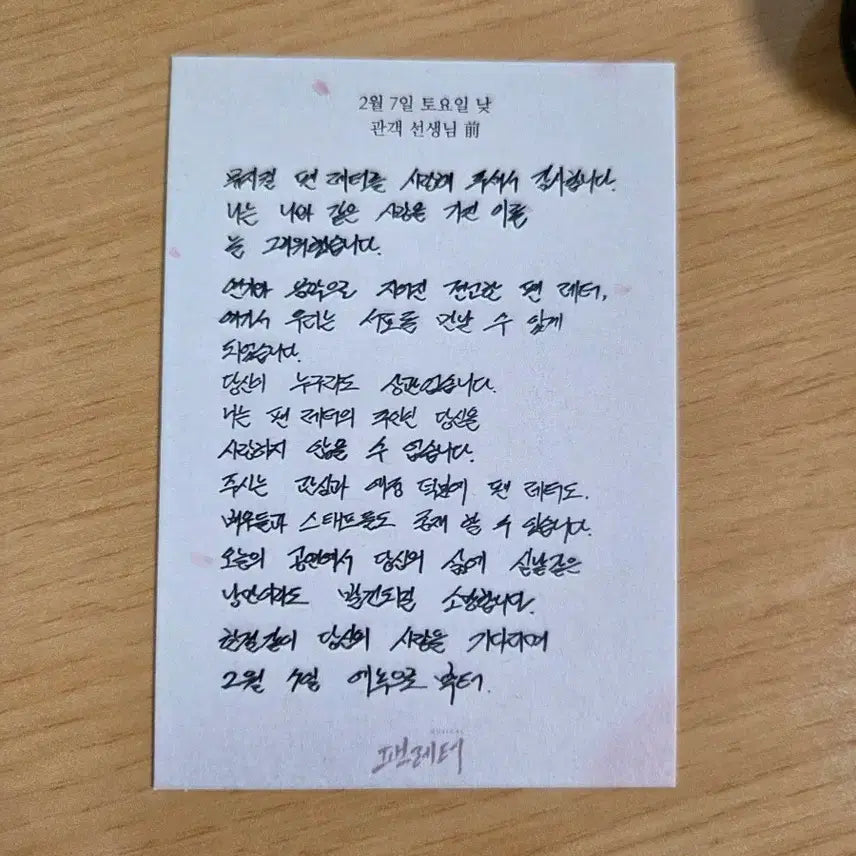 2월 7일 토요일 낮
관객 선생님 前
뮤지컬 팬 레터를 사랑해 주셔서 감사합니다.
나는 나와 같은 슬픔을 가진 이를
늘 그리워했습니다.
연기와 음악으로 지어진 견고한 팬 레터,
여기서 우리는 서로를 만날 수 있게
되었습니다.
당신이 누구라도 상관없습니다.
나는 팬 레터의 주인인 당신을
사랑하지 않을 수 없습니다.
주시는 관심과 애정 덕분에 팬 레터도,
배우들과 스태프들도 존재 할 수 있습니다.
오늘의 공연에서 당신의 삶에 실낱같은
낭만이라도 발견되길 소망합니다.
한결같이 당신의 사랑을 기다리며
2월 7일 에녹으로 부터.
팬레터